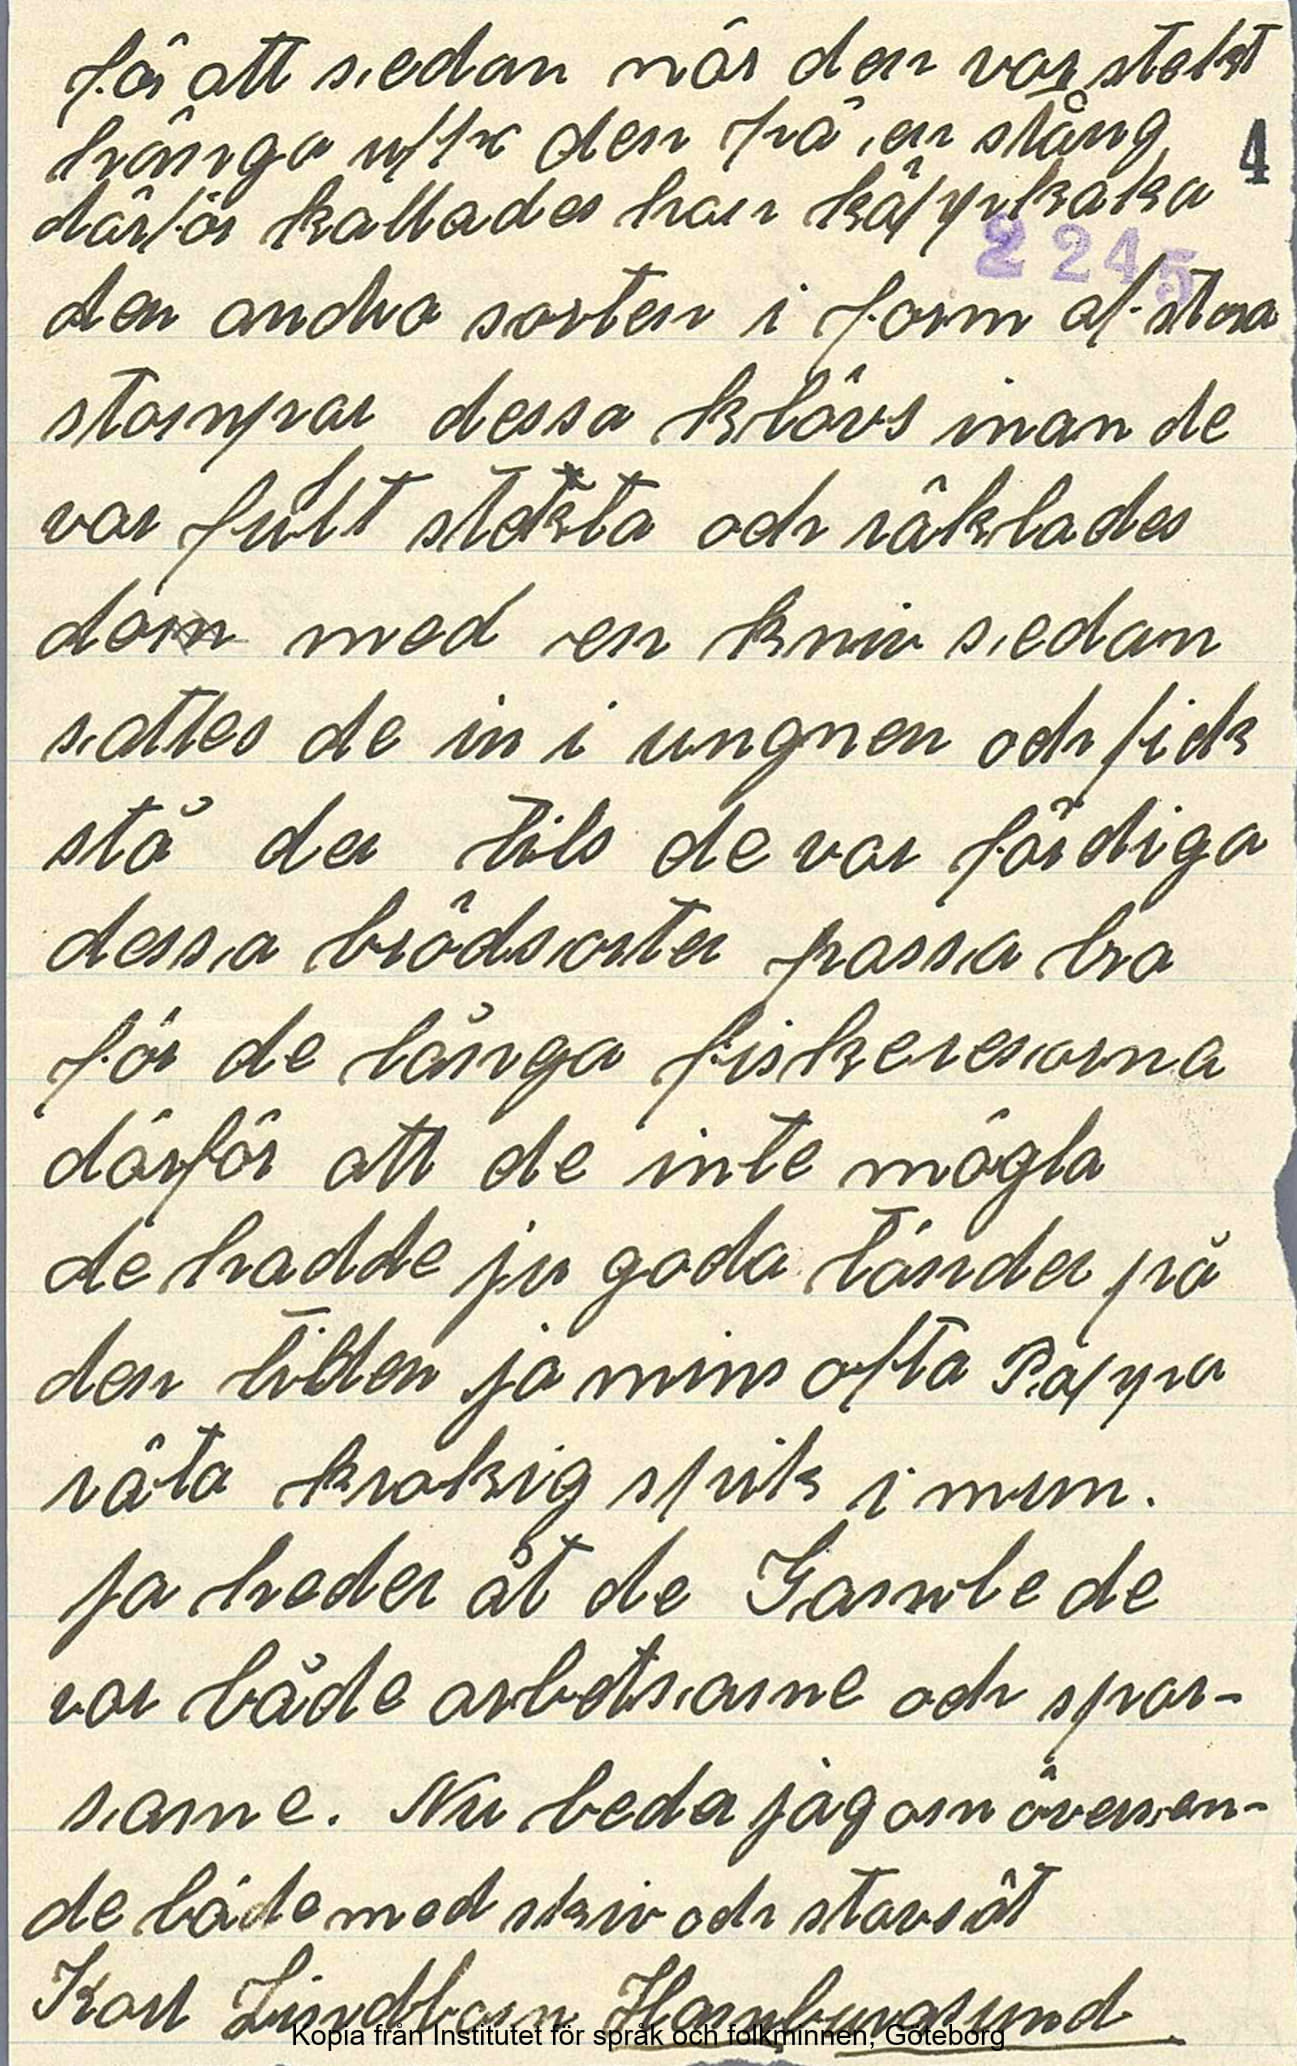 för att sedan när den var stekt
hänga upp den på en stång
4
därför kallades han käppkaka
2245
den andra sorten i form af stora
stompar dessa klövs inan de
var fult stekta och räklades
dom med en kniv sedan
sattes de in i ungnen och fick
stå der tils de var färdiga
dessa brödsorter passa bra
för de långa fiskeresorna
därför att de inte mögla
de hadde ju goda tänder på
den tiden ja mins ofta Pappa
räta krokig spik i mun.
ja heder åt de Gamle de
var både arbetsame och spar-
same. Nu beder jag om översen-
de både med skriv och stavsät
Karl Lindblom Hamburgsund
Kopia från Institutet för språk och folkminnen, Göteborg